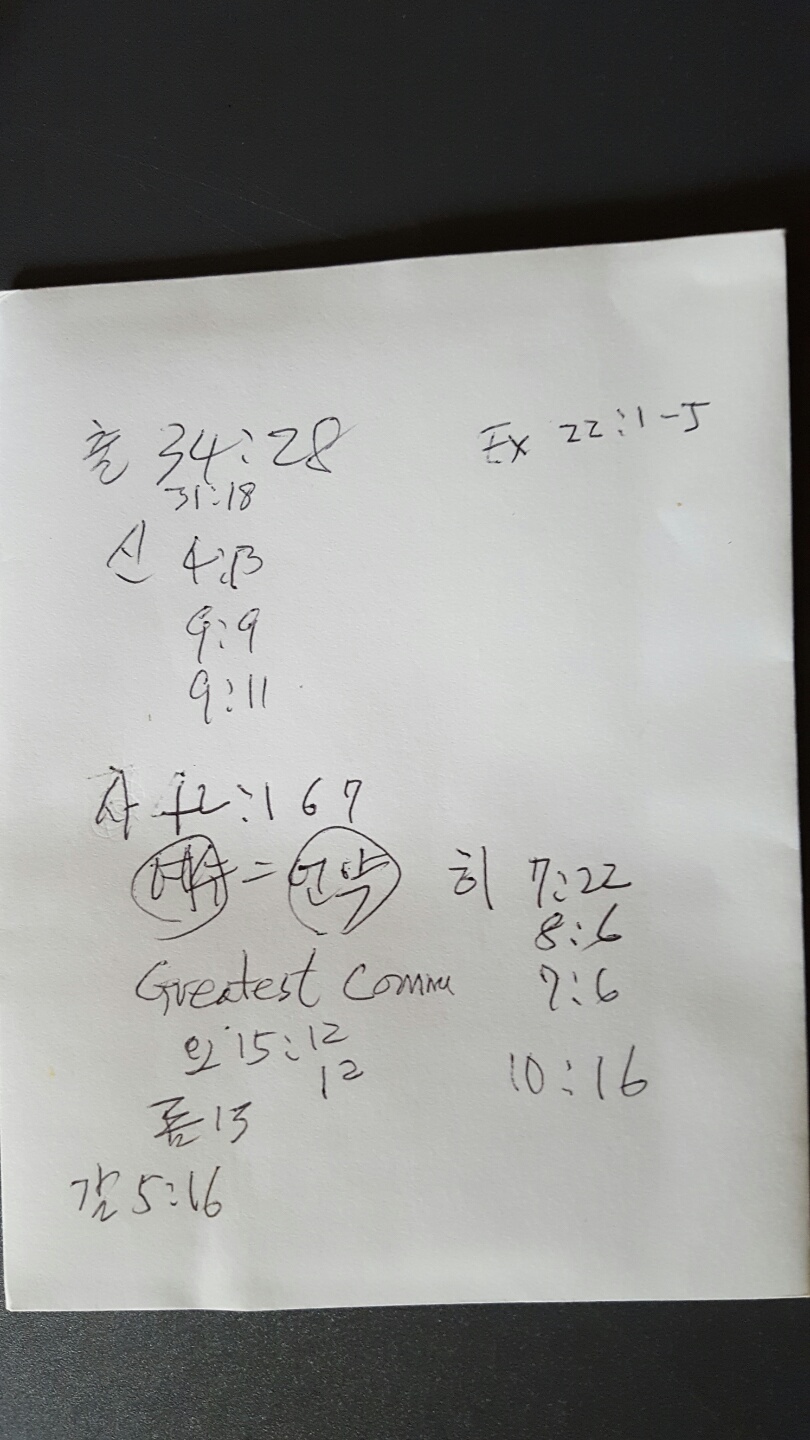 출 34:28
Ex 22:1-5
31:18
신 4:13
9:9
9:11
사 42:1 6 7
예수 = 언약
히 7:22
8:6
Greatest Comm
7:6
요 15:12
12
10:16
롬 13
갈 5:16